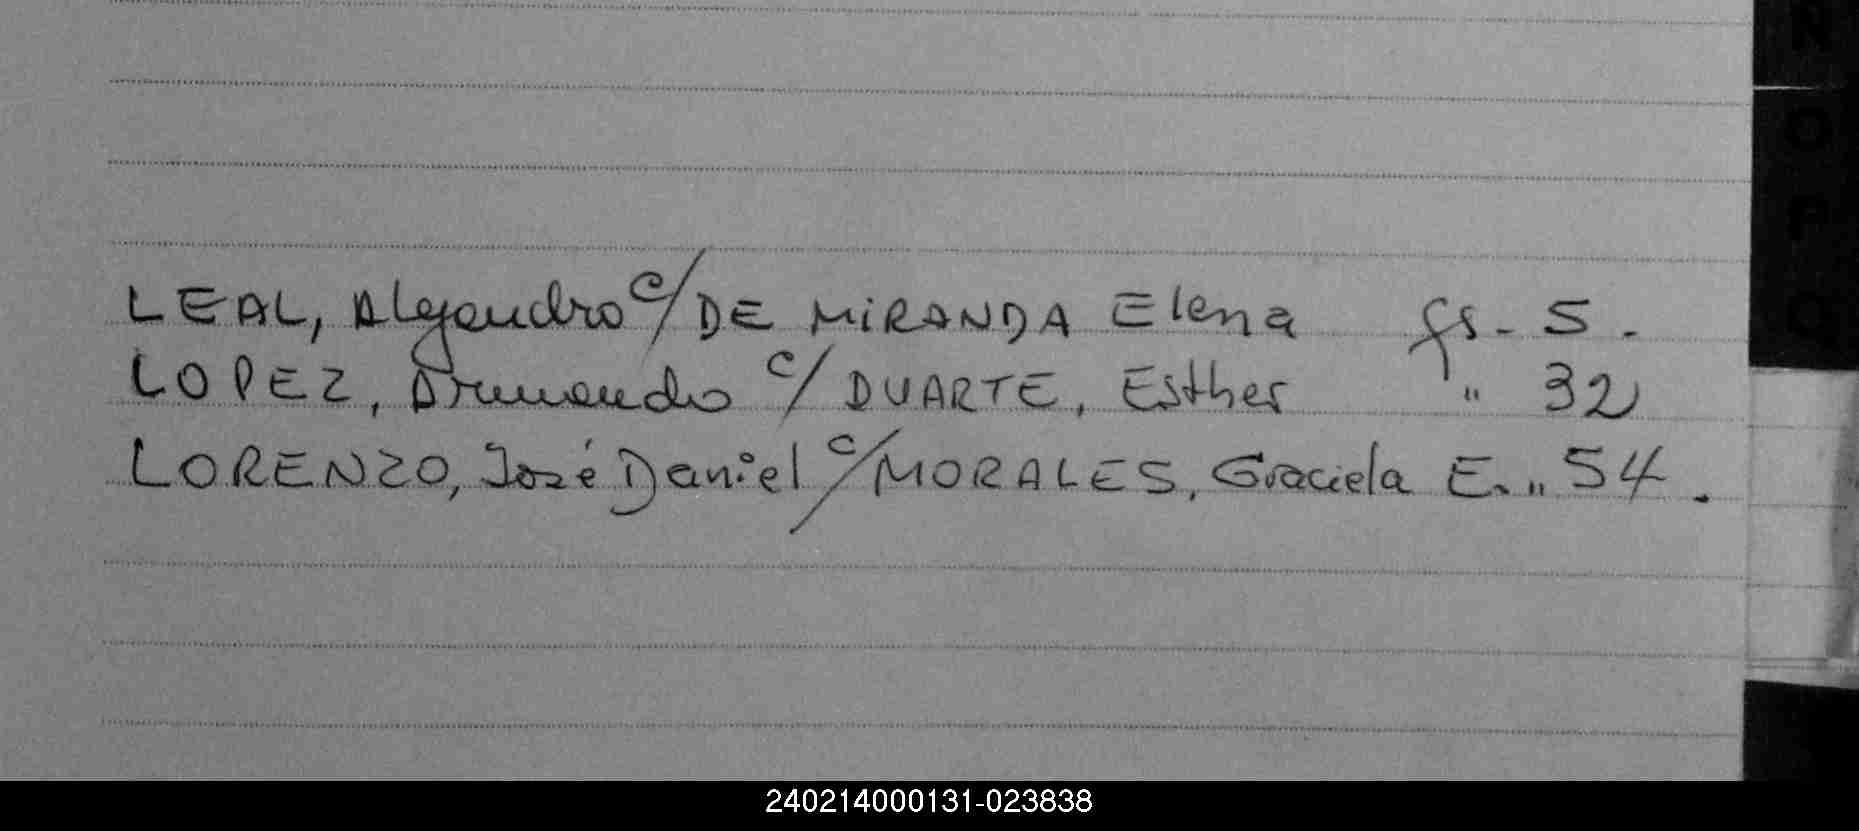 LEAL, Alejandro c/ DE MIRANDA Elena fs. 5.
LOPEZ, Armando c/ DUARTE, Esther " 32
LORENZO, José Daniel c/ MORALES, Graciela E. " 54.
N
O
P
Q
240214000131-023838